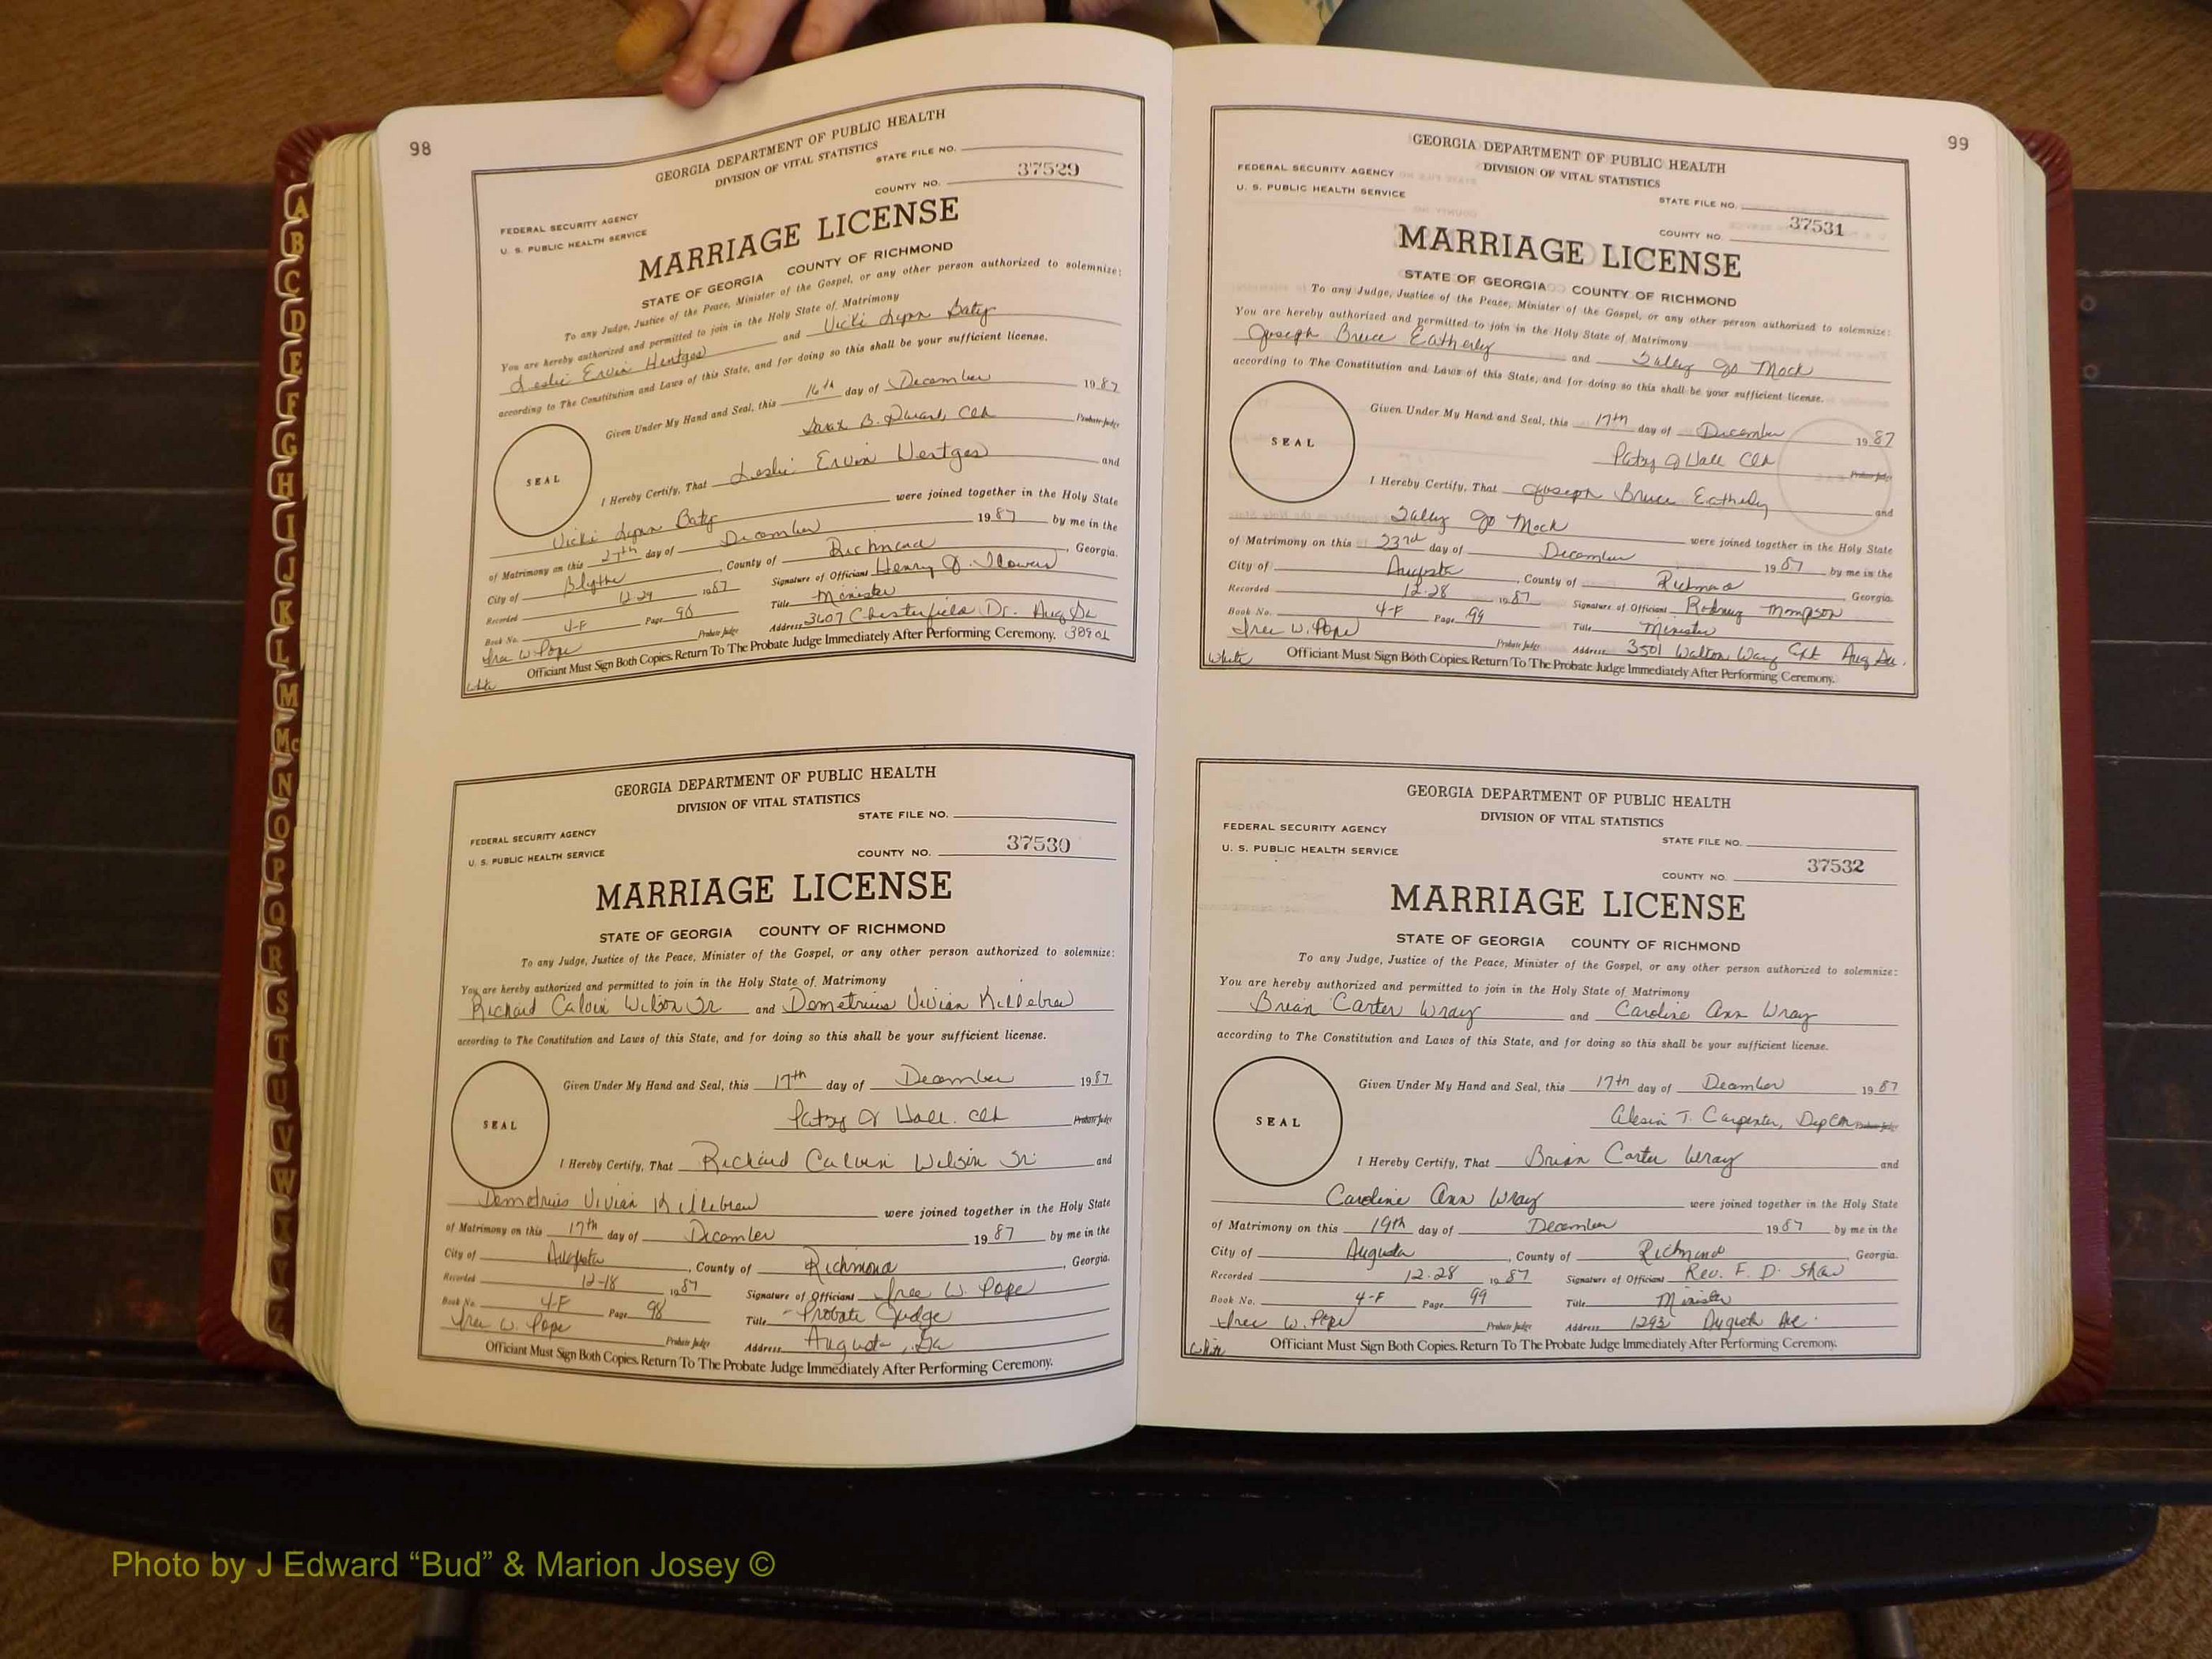 98
GEORGIA DEPARTMENT OF PUBLIC HEALTH
DIVISION OF VITAL STATISTICS
STATE FILE NO.
37529
COUNTY NO.
FEDERAL SECURITY AGENCY
U. S. PUBLIC HEALTH SERVICE
MARRIAGE LICENSE
STATE OF GEORGIA COUNTY OF RICHMOND
To any Judge, Justice of the Peace, Minister of the Gospel, or any other person authorized to solemnize:
You are hereby authorized and permitted to join in the Holy State of Matrimony
Leslie Ervin Hentges and Vicki Lynn Baty
according to The Constitution and Laws of this State, and for doing so this shall be your sufficient license.
Given Under My Hand and Seal, this 16th day of December 1987
B. Clk Probate Judge
SEAL
I Hereby Certify, That Leslie Ervin Hentges and
Vicki Lynn Baty were joined together in the Holy State
of Matrimony on this 27th day of December 1987 by me in the
City of Blythe, County of Richmond, Georgia.
Recorded 12-29 1987 Signature of Officiant Henry J. Flowers
Book No. 4-F Page 98 Title Minister
W. Pope Probate Judge Address 3607 Chesterfield Dr. Aug Ga
Officiant Must Sign Both Copies. Return To The Probate Judge Immediately After Performing Ceremony.
White
GEORGIA DEPARTMENT OF PUBLIC HEALTH
DIVISION OF VITAL STATISTICS
STATE FILE NO.
FEDERAL SECURITY AGENCY
37530
U. S. PUBLIC HEALTH SERVICE COUNTY NO.
MARRIAGE LICENSE
STATE OF GEORGIA COUNTY OF RICHMOND
To any Judge, Justice of the Peace, Minister of the Gospel, or any other person authorized to solemnize:
You are hereby authorized and permitted to join in the Holy State of Matrimony
Richard Calvin Wilson Sr. and Demetrius Vivian Killebrew
according to The Constitution and Laws of this State, and for doing so this shall be your sufficient license.
Given Under My Hand and Seal, this 17th day of December 1987
Patsy J Hall. Clk Probate Judge
SEAL
I Hereby Certify, That Richard Calvin Wilson Sr. and
Demetrius Vivian Killebrew were joined together in the Holy State
of Matrimony on this 17th day of December 1987 by me in the
City of Augusta, County of Richmond, Georgia.
Recorded 12-18 1987 Signature of Officiant W. Pope
Book No. 4-F Page 98 Title Probate Judge
W. Pope Probate Judge Address Augusta, Ga
Officiant Must Sign Both Copies. Return To The Probate Judge Immediately After Performing Ceremony.
99
GEORGIA DEPARTMENT OF PUBLIC HEALTH
DIVISION OF VITAL STATISTICS
FEDERAL SECURITY AGENCY
U. S. PUBLIC HEALTH SERVICE
STATE FILE NO.
37531
COUNTY NO.
MARRIAGE LICENSE
STATE OF GEORGIA COUNTY OF RICHMOND
To any Judge, Justice of the Peace, Minister of the Gospel, or any other person authorized to solemnize:
You are hereby authorized and permitted to join in the Holy State of Matrimony
Joseph Bruce Eatherly and Sally Jo Mock
according to The Constitution and Laws of this State, and for doing so this shall be your sufficient license.
Given Under My Hand and Seal, this 17th day of December 1987
Patsy J Hall Clk Probate Judge
SEAL
I Hereby Certify, That Joseph Bruce Eatherly and
Sally Jo Mock were joined together in the Holy State
of Matrimony on this 23rd day of December 1987 by me in the
City of Augusta, County of Richmond Georgia.
Recorded 12-28 1987 Signature of Officiant Rodney Thompson
Book No. 4-F Page 99 Title Minister
W. Pope Probate Judge Address 3501 Walton Way Ext Aug Ga.
White Officiant Must Sign Both Copies. Return To The Probate Judge Immediately After Performing Ceremony.
GEORGIA DEPARTMENT OF PUBLIC HEALTH
DIVISION OF VITAL STATISTICS
FEDERAL SECURITY AGENCY
STATE FILE NO.
U. S. PUBLIC HEALTH SERVICE
37532
COUNTY NO.
MARRIAGE LICENSE
STATE OF GEORGIA COUNTY OF RICHMOND
To any Judge, Justice of the Peace, Minister of the Gospel, or any other person authorized to solemnize:
You are hereby authorized and permitted to join in the Holy State of Matrimony
Brian Carter Wray and Caroline Ann Wray
according to The Constitution and Laws of this State, and for doing so this shall be your sufficient license.
Given Under My Hand and Seal, this 17th day of December 1987
Alesia T. Carpenter, Dep Clk Probate Judge
SEAL
I Hereby Certify, That Brian Carter Wray and
Caroline Ann Wray were joined together in the Holy State
of Matrimony on this 19th day of December 1987 by me in the
City of Augusta, County of Richmond, Georgia.
Recorded 12.28 1987 Signature of Officiant Rev. F. D. Shaw
Book No. 4-F Page 99 Title Minister
W. Pope Probate Judge Address 1293 Ave.
White Officiant Must Sign Both Copies. Return To The Probate Judge Immediately After Performing Ceremony.
A
B
C
D
E
F
G
H
I
J
K
L
M
Mc
N
O
P
Q
R
S
T
U
V
W
Y
Z
Photo by J Edward “Bud” & Marion Josey ©